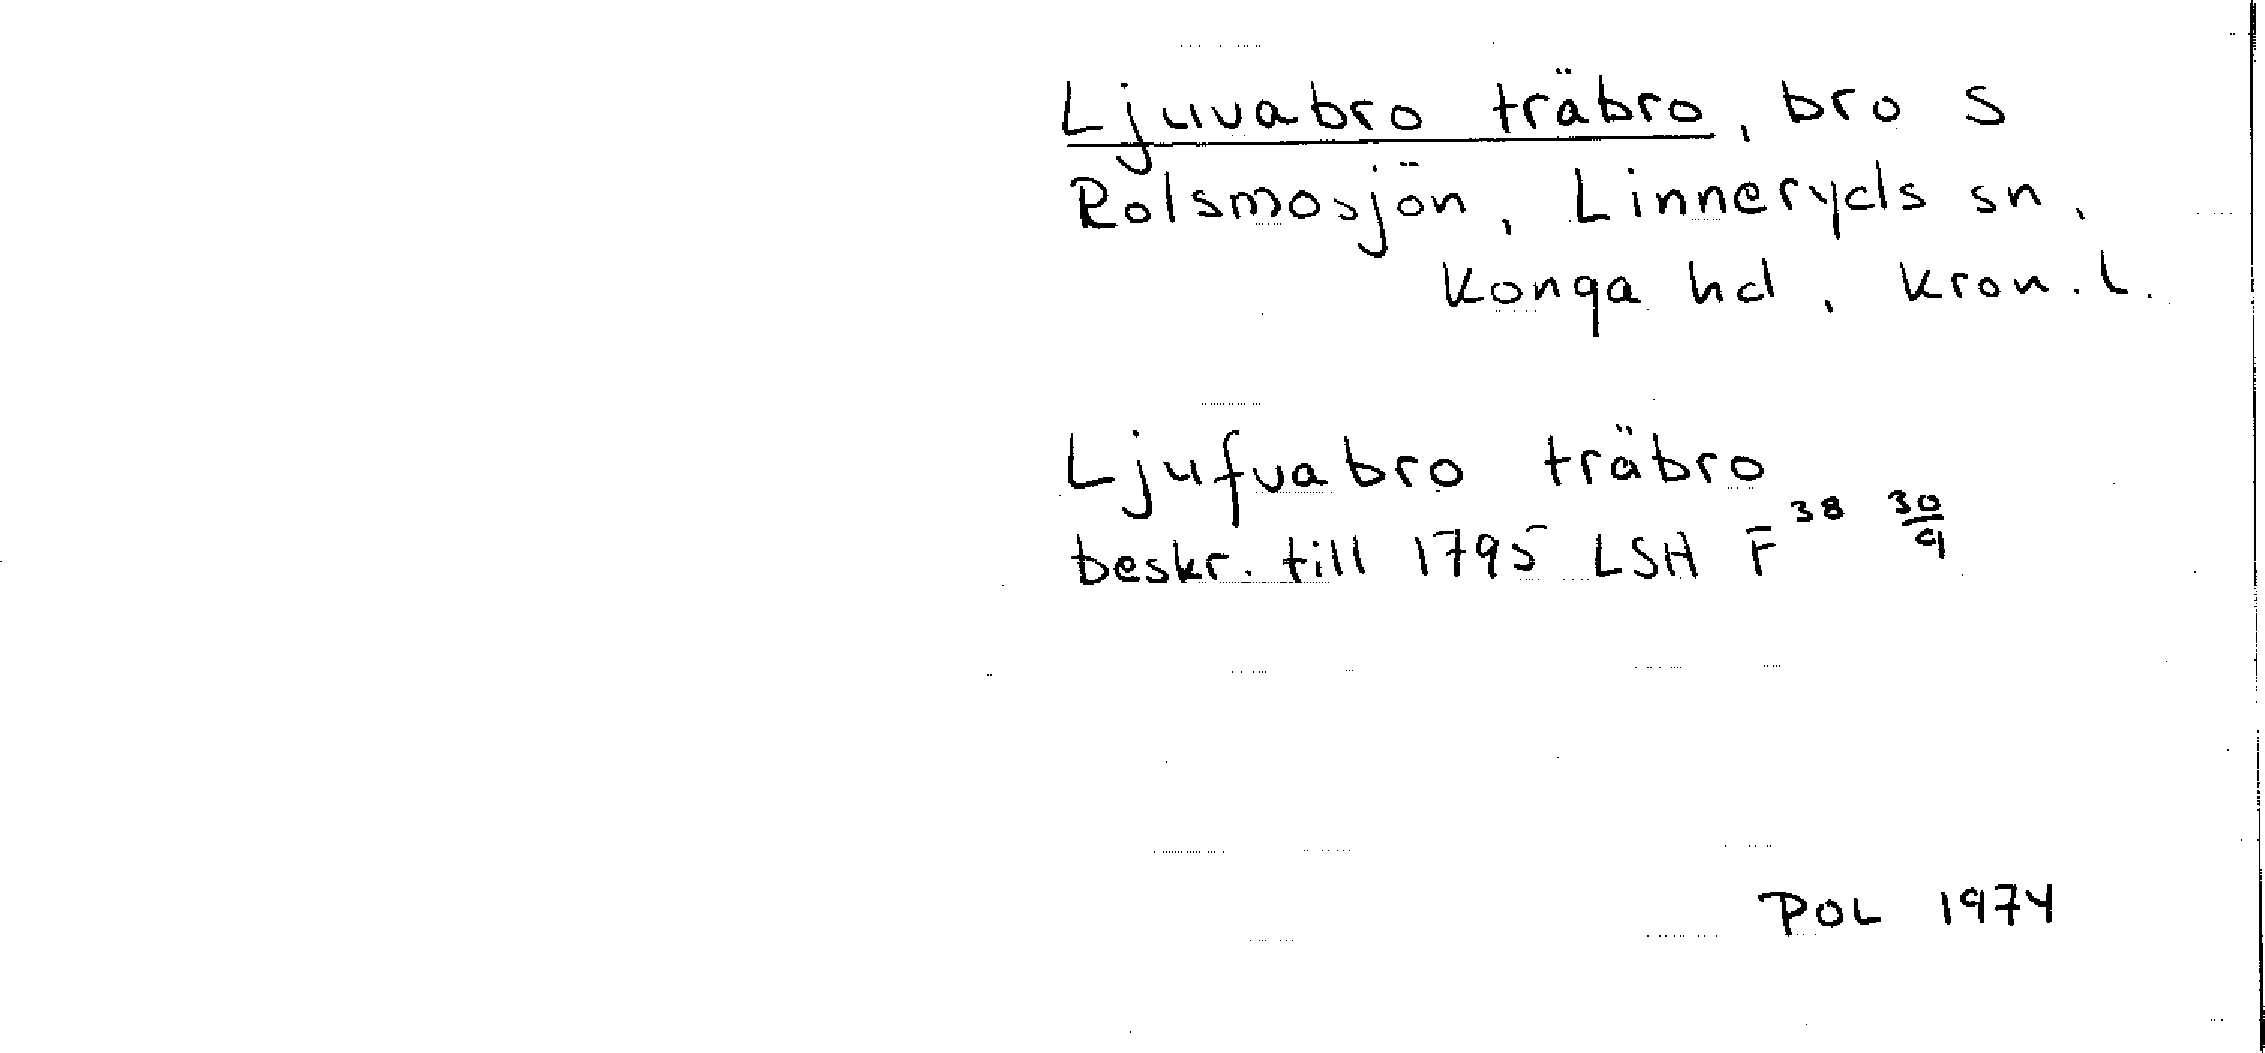 Ljuvabro träbro, bro S
Rolsmosjön, Linneryds sn,
Konga hd, Kron. l.
Ljufvabro träbro
beskr. till 1795 LSH F 38 30/9
POL 1974